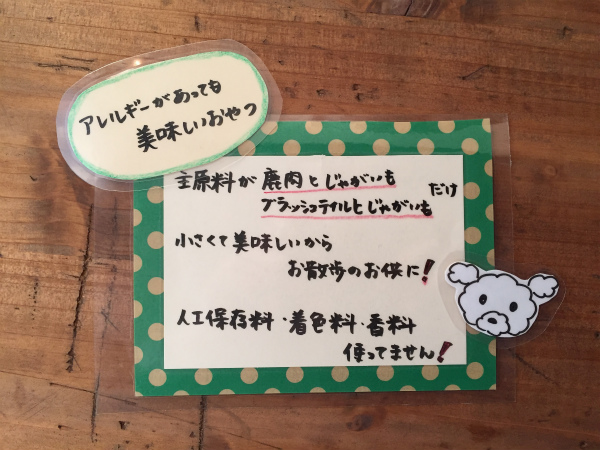 アレルギーがあっても
美味しいおやつ
主原料が 鹿肉とじゃがいも
ブラッシュテイルとじゃがいも
だけ
小さくて美味しいから
お散歩のお供に!
人工保存料・着色料・香料
使ってません!